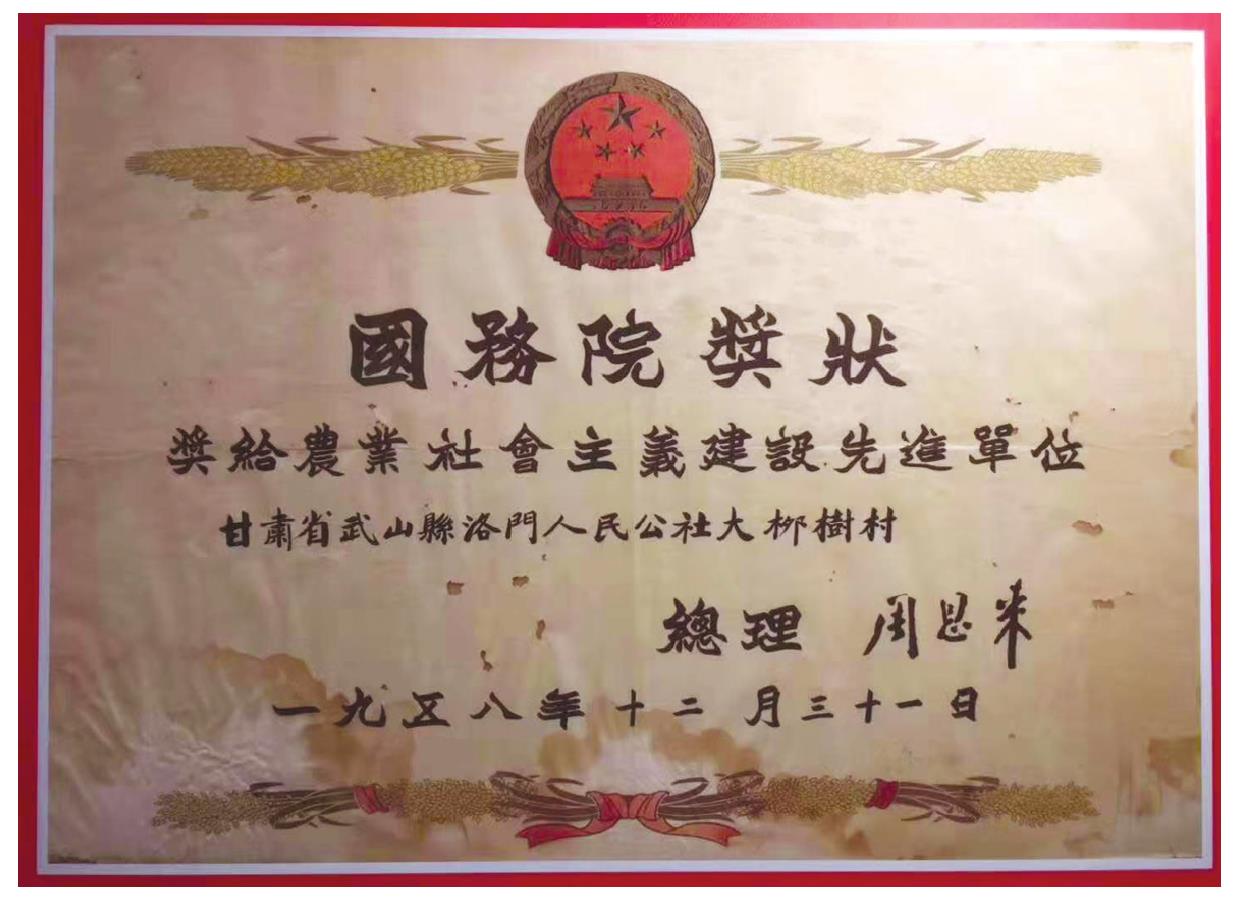 國務院獎狀
獎給農業社會主義建設先進單位
甘肅省武山縣洛門人民公社大柳樹村
總理 周恩来
一九五八年十二月三十一日